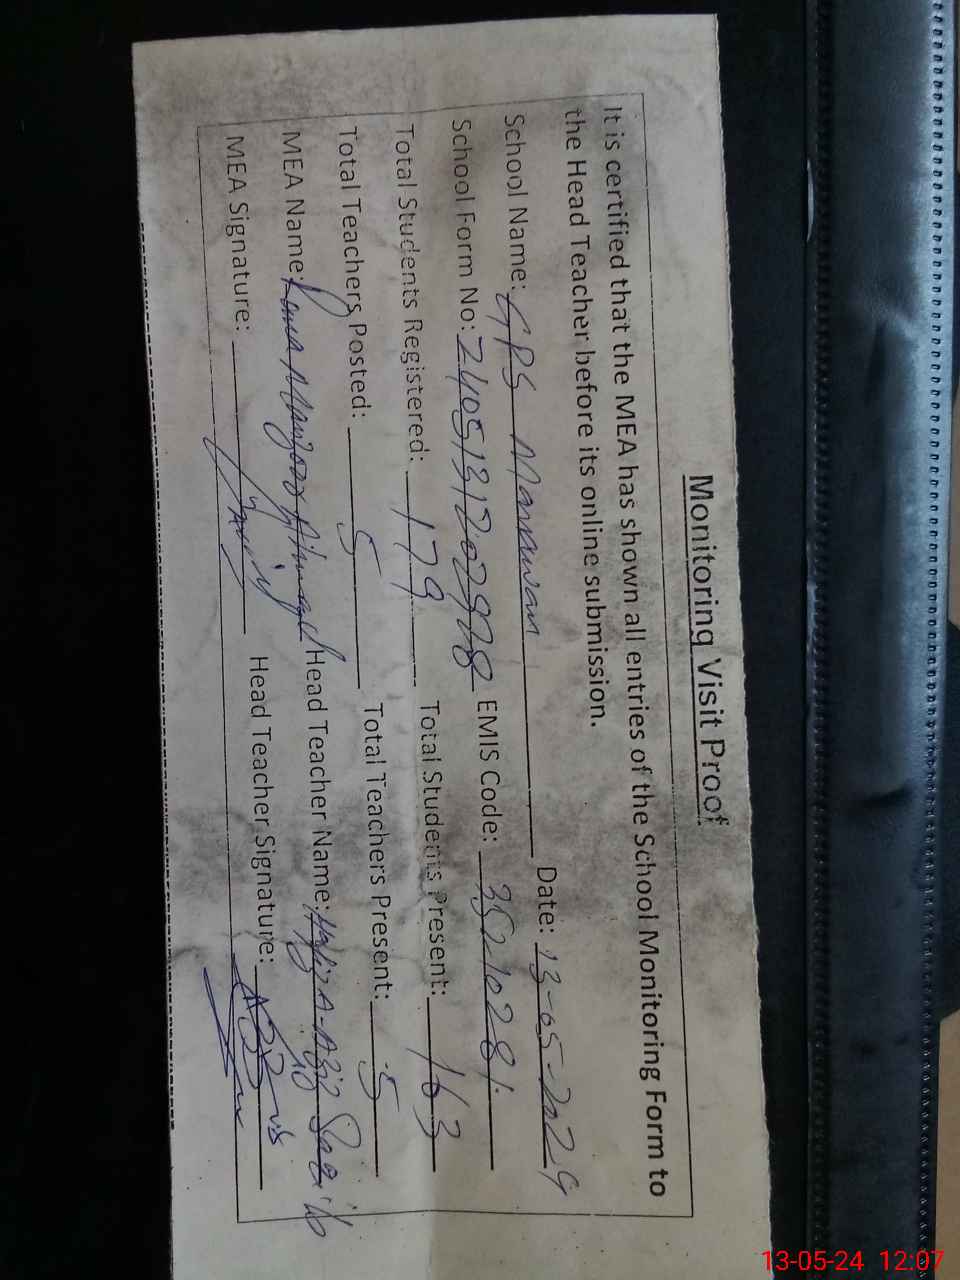 Monitoring Visit Proof
It is certified that the MEA has shown all entries of the School Monitoring Form to
the Head Teacher before its online submission.
School Name: GPS Date: 13-05-2024
School Form No: EMIS Code: 35210281
Total Students Registered: 179 Total Students Present: 163
Total Teachers Posted: 5 Total Teachers Present: 5
MEA Name: Head Teacher Name:
MEA Signature: Head Teacher Signature:
13-05-24 12:07